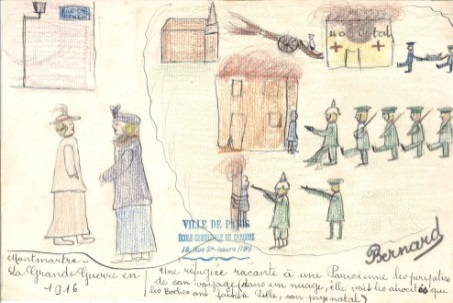 Hopital
VILLE DE PARIS
ÉCOLE COMMUNALE DE GARÇONS
Bernard
Montmartre
La Grande Guerre en
1916
Une réfugiée raconte à une Parisienne les péripéties
de son voyage (dans un nuage, elle voit les atrocités que
les Boches ont faites à Lille, son pays natal)